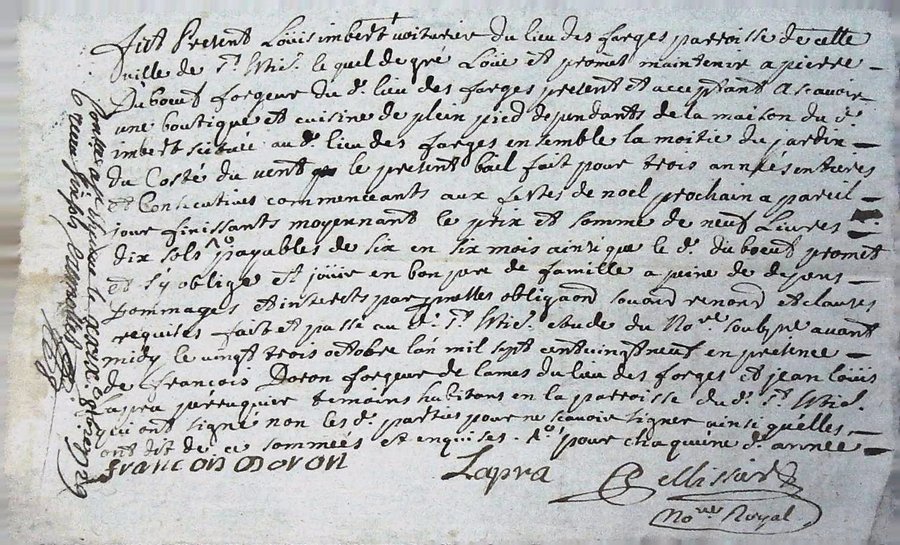 fut Present Loüis imbert voiturier du lieu des forges parroisse de cette
ville de St. Etie. le quel de gré Loüe et promet maintenir a pierre
Duboeuf forgeur du d. lieu des forges present et acceptant Ascavoir
une boutique et cuisine de plein pied dependants de la maison du d.
imbert scituée au d. lieu des forges ensemble la moitie du jardin
du Costé du vent le present bail fait pour trois années entieres
et Consecutives commenceants aux festes de noel prochain a pareil
jour finissants moyennant le prix et somme de neuf Livres
dix sols payables de six en six mois ainsi que le d. duboeuf promet
et s'y oblige et joüir en bon pere de famille a peine de depens
dommages et interets par et clauses
requises fait et passé au d. St. Etie. etude du Nore. soubsné avant
midy le vingt trois octobre lan mil sept cent vingt neuf en presence
de francois Doron forgeur de lames du lieu des forges et jean Loüis
Lapra perruquier temoins habitans en la parroisse du d. St. Etie.
qui ont signé non les d. parties pour ne scavoir signer ainsi quelles
ont dit de ce sommées et enquises. pour chaquune d. année
francois Doron
Lapra
Nore. Royal